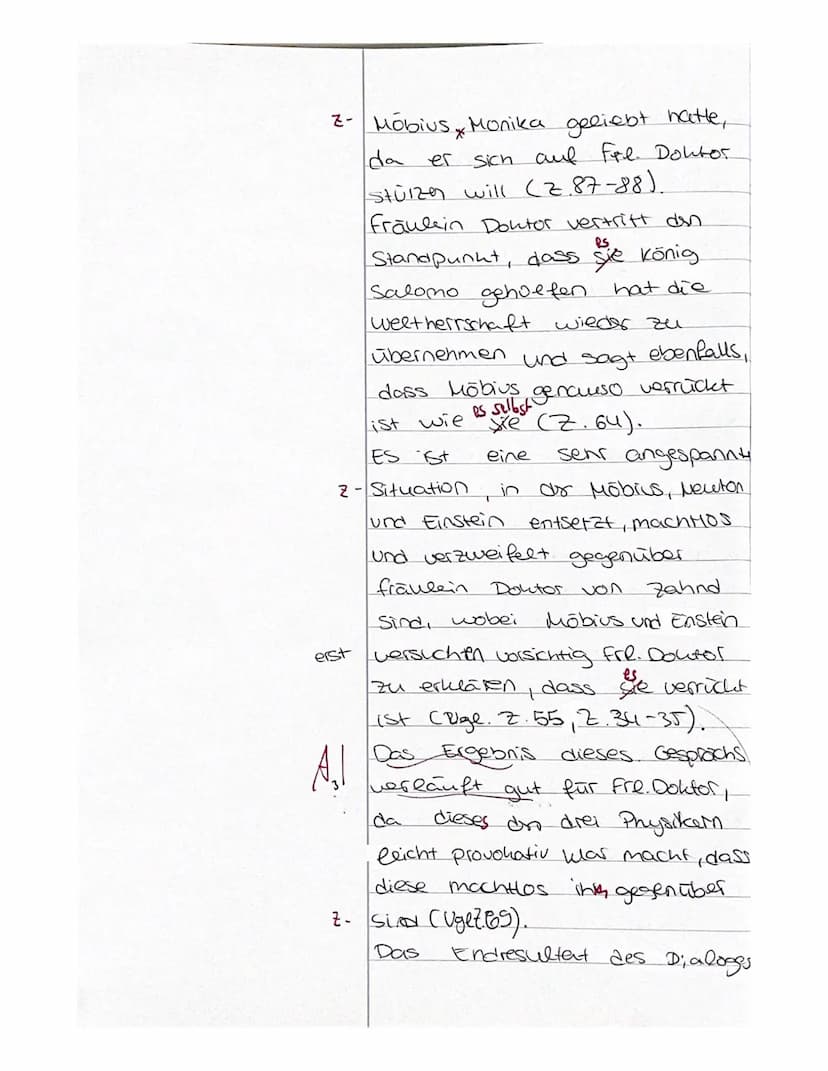 z- Möbius, Monika geliebt hatte,
da er sich auf Frl. Doktor
stützen will (Z.87-88).
Fräulein Doktor vertritt den
es
Standpunkt, dass sie König
Salomo geholfen hat die
Weltherrschaft wieder zu
übernehmen und sagt ebenfalls,
dass Möbius genauso verrückt
es selbst
ist wie sie (Z.64).
ES ist eine sehr angespannte
z- Situation, in der Möbius, Newton
und Einstein entsetzt, machtlos
und verzweifelt gegenüber
fräulein Doktor von Zahnd
sind, wobei Möbius und Enstein
erst versuchen vorsichtig Frl. Doktor
es
zu erklären, dass sie verrückt
ist (Vgl. Z.55, Z.34-35).
Das Ergebnis dieses Gesprächs
A! verläuft gut für Frl. Doktor,
3
da dieses den drei Physikern
leicht provokativ klar macht, dass
diese machtlos ihm gegenüber
z- sind (Vgl Z.69).
Das Endresultat des Dialoges